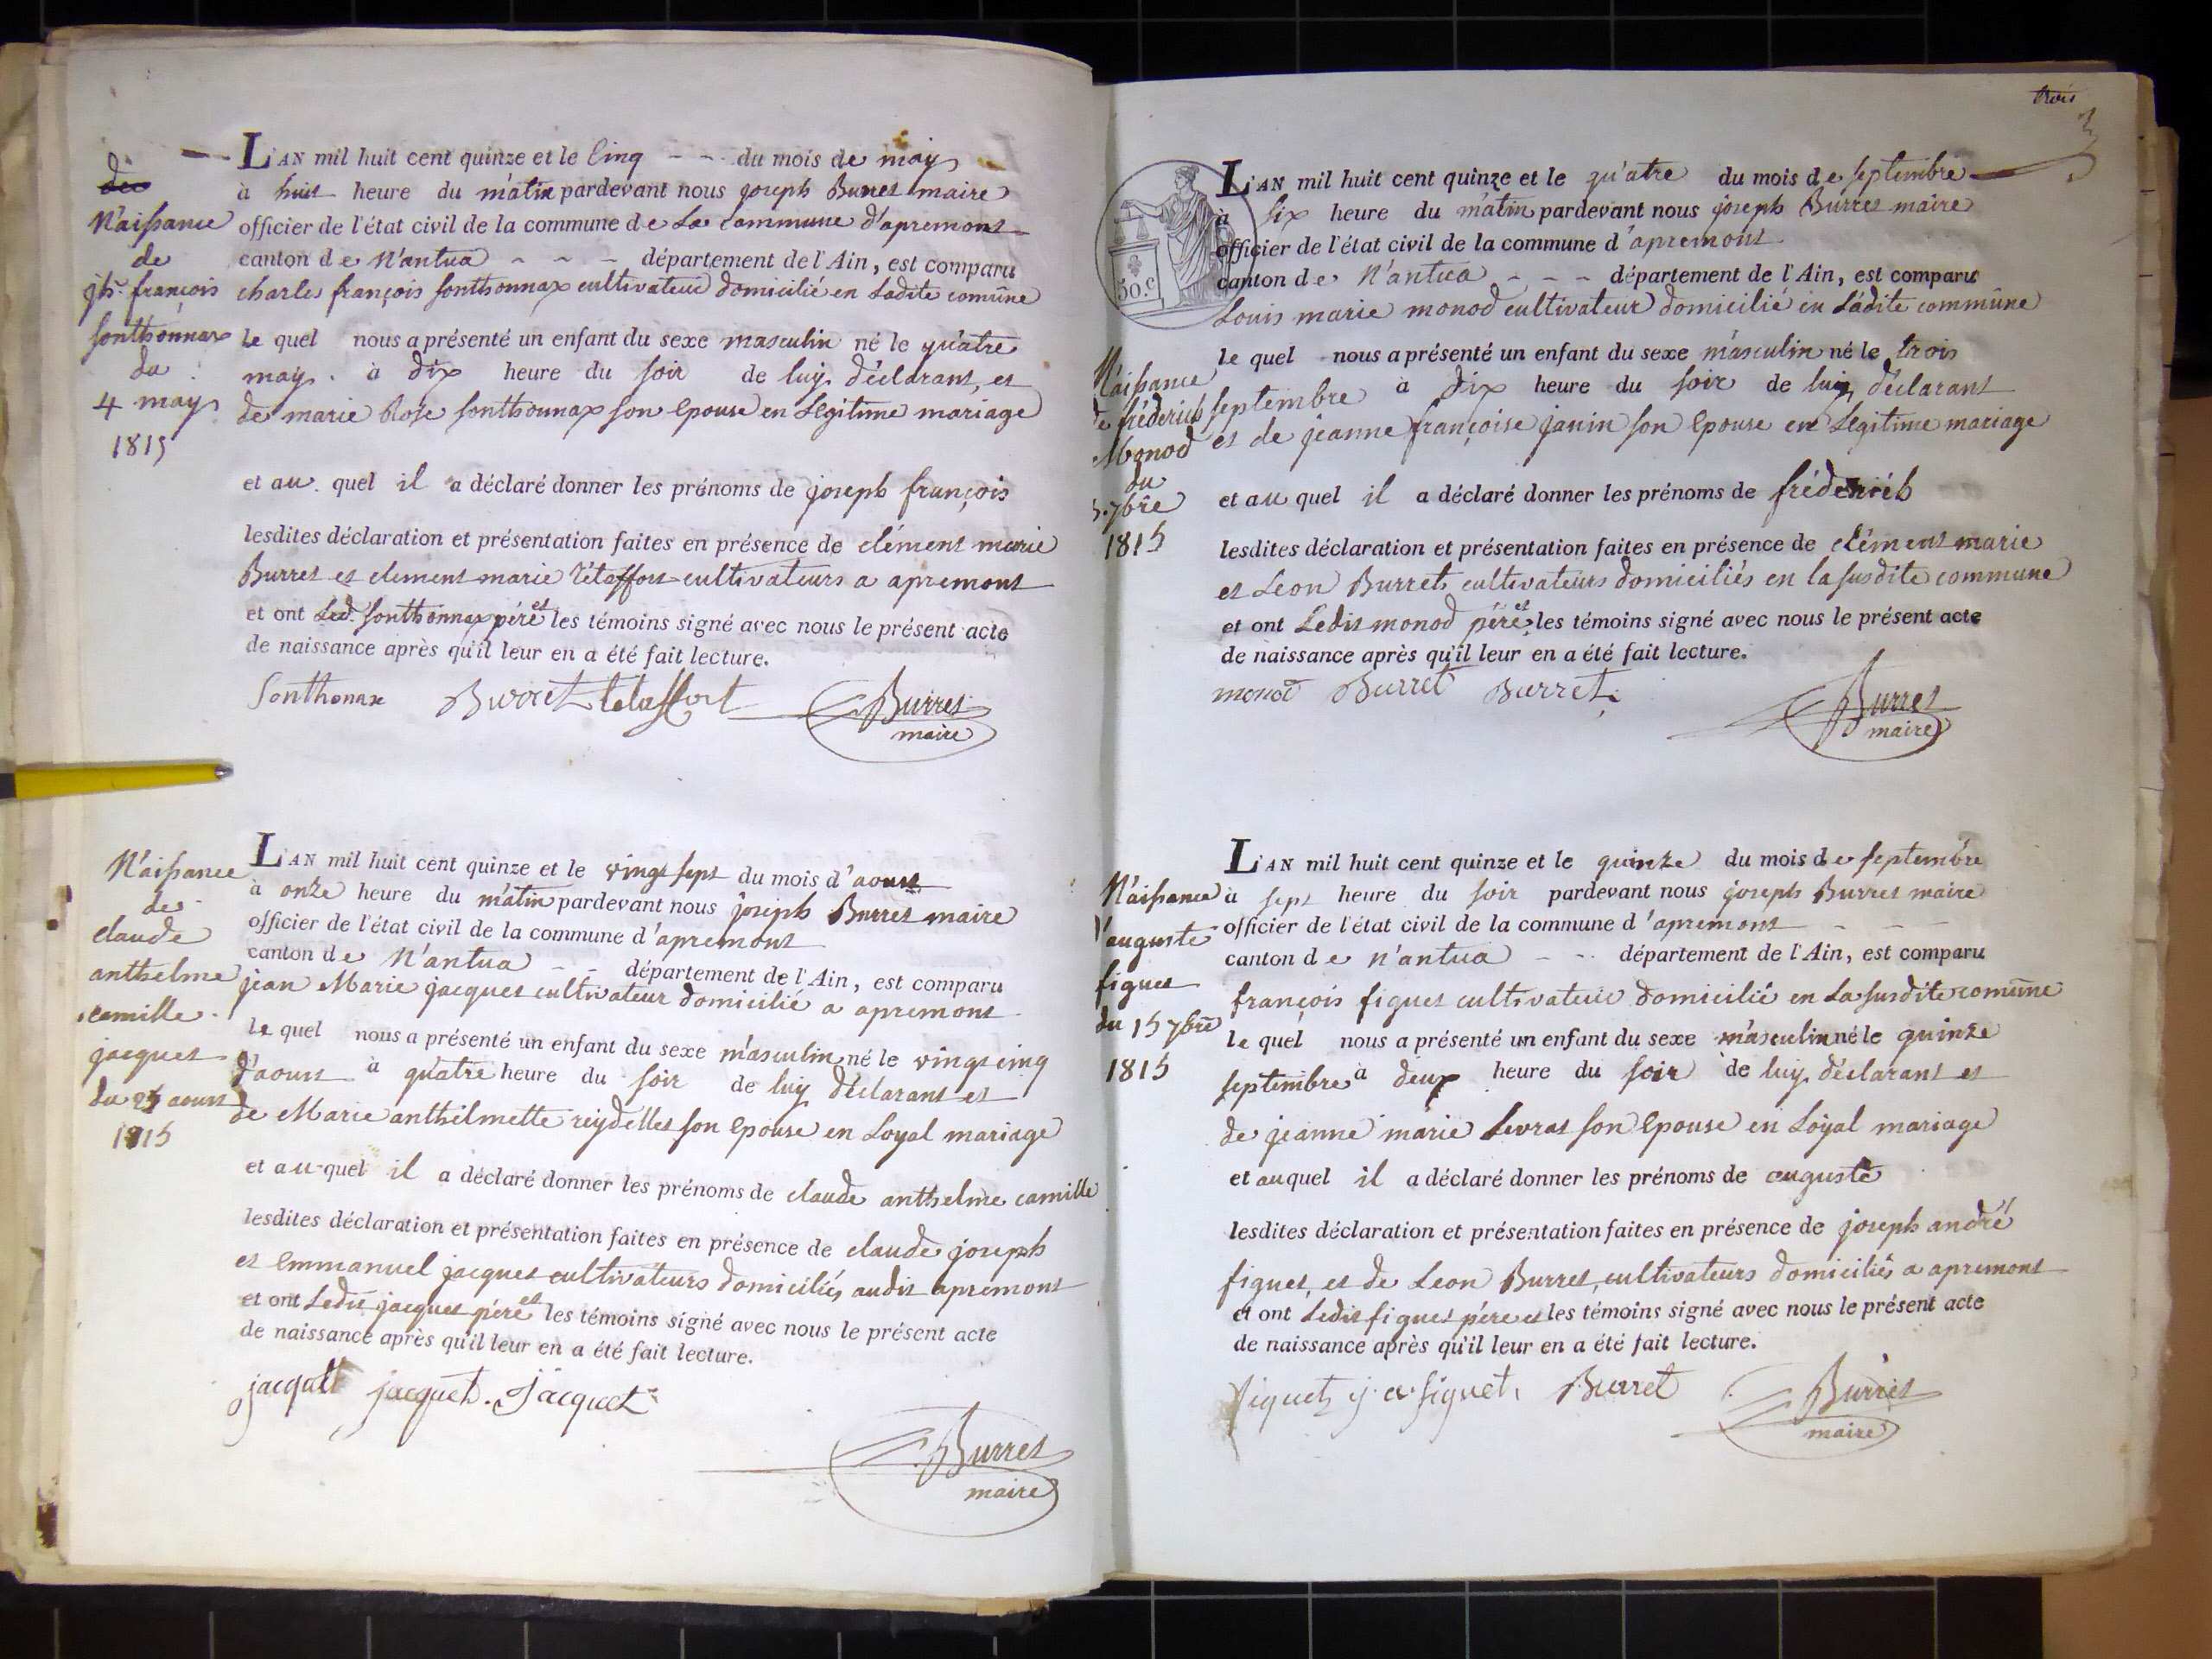 dec
Naissance
de
jh. françois
sonthonnax
du
4 may
1815
L'AN mil huit cent quinze et le Cinq - - du mois de may
à huit heure du matin pardevant nous joseph Burret maire
officier de l'état civil de la commune de La commune d'apremont
canton de Nantua - - - département de l'Ain, est comparu
charles françois sonthonnax cultivateur domicilié en Ladite comune
le quel nous a présenté un enfant du sexe masculin né le quatre
may à dix heure du soir de luy déclarant, et
de marie Rose sonthonnax son Epouse en Legitime mariage
et au quel il a déclaré donner les prénoms de joseph françois
lesdites déclaration et présentation faites en présence de clément marie
Burret et clement marie Tétaffort cultivateurs a apremont
et ont Led. sonthonnax père et les témoins signé avec nous le présent acte
de naissance après qu'il leur en a été fait lecture.
Sonthonax Burret tetaffort Burret
maire
Naissance
de
claude
anthelme
camille
jacquet
du 25 aoust
1815
L'AN mil huit cent quinze et le vingt sept du mois d'aoust
à onze heure du matin pardevant nous joseph Burret maire
officier de l'état civil de la commune d'apremont
canton de Nantua - - département de l'Ain, est comparu
jean Marie jacquet cultivateur domicilié a apremont
le quel nous a présenté un enfant du sexe masculin né le vingt cinq
d'aoust à quatre heure du soir de luy déclarant et
de Marie anthelmette reydellet son Epouse en Loyal mariage
et au quel il a déclaré donner les prénoms de claude anthelme camille
lesdites déclaration et présentation faites en présence de claude joseph
et Emmanuel jacquet cultivateurs domiciliés audit apremont
et ont Ledit jacquet père et les témoins signé avec nous le présent acte
de naissance après qu'il leur en a été fait lecture.
jacquet jacquet. Jacquet
Burret
maire
trois
3
50.c
Naissance
de fréderich
Monod
du
3. 7bre
1815
L'AN mil huit cent quinze et le quatre du mois de septembre
à six heure du matin pardevant nous joseph Burret maire
officier de l'état civil de la commune d'apremont
canton de Nantua - - - département de l'Ain, est comparu
Louis marie monod cultivateur domicilié en Ladite commune
le quel nous a présenté un enfant du sexe masculin né le trois
septembre à dix heure du soir de luy déclarant
et de jeanne françoise janin son Epouse en Legitime mariage
et au quel il a déclaré donner les prénoms de fréderich
lesdites déclaration et présentation faites en présence de clément marie
et Leon Burret cultivateurs domiciliés en la susdite commune
et ont Ledit monod père et les témoins signé avec nous le présent acte
de naissance après qu'il leur en a été fait lecture.
monod Burret Burret
Burret
maire
Naissance
d'auguste
figuet
du 15 7bre
1815
L'AN mil huit cent quinze et le quinze du mois de septembre
à sept heure du soir pardevant nous joseph Burret maire
officier de l'état civil de la commune d'apremont - - -
canton de nantua - - département de l'Ain, est comparu
françois figuet cultivateur domicilié en La susdite comune
le quel nous a présenté un enfant du sexe masculin né le quinze
septembre à deux heure du soir de luy déclarant et
de jeanne marie Levrat son Epouse en Loyal mariage
et auquel il a déclaré donner les prénoms de auguste
lesdites déclaration et présentation faites en présence de joseph andré
figuet, et de Leon Burret, cultivateurs domiciliés a apremont
et ont Ledit figuet père et les témoins signé avec nous le présent acte
de naissance après qu'il leur en a été fait lecture.
figuet j. a. figuet. Burret Burret
maire